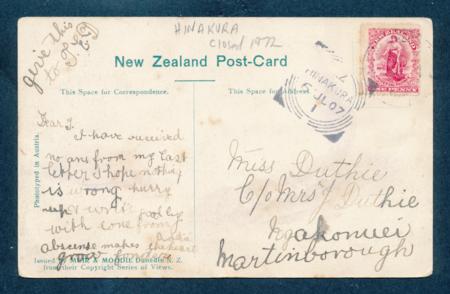 give this
to T.
HINAKURA
Closed 1972
New Zealand Post-Card
This Space for Correspondence.
This Space for Address.
HINAKURA
JL 07
ONE PENNY
Dear T.
I have received
no ans from my last
letter I hope nothing
is wrong hurry
up & write
with love from
absense makes the heart
grow fonder
Miss Duthie
C/o Mrs J Duthie
Martinborough
Phototyped in Austria.
Issued by MUIR & MOODIE Dunedin N. Z.
from their Copyright Series of Views.